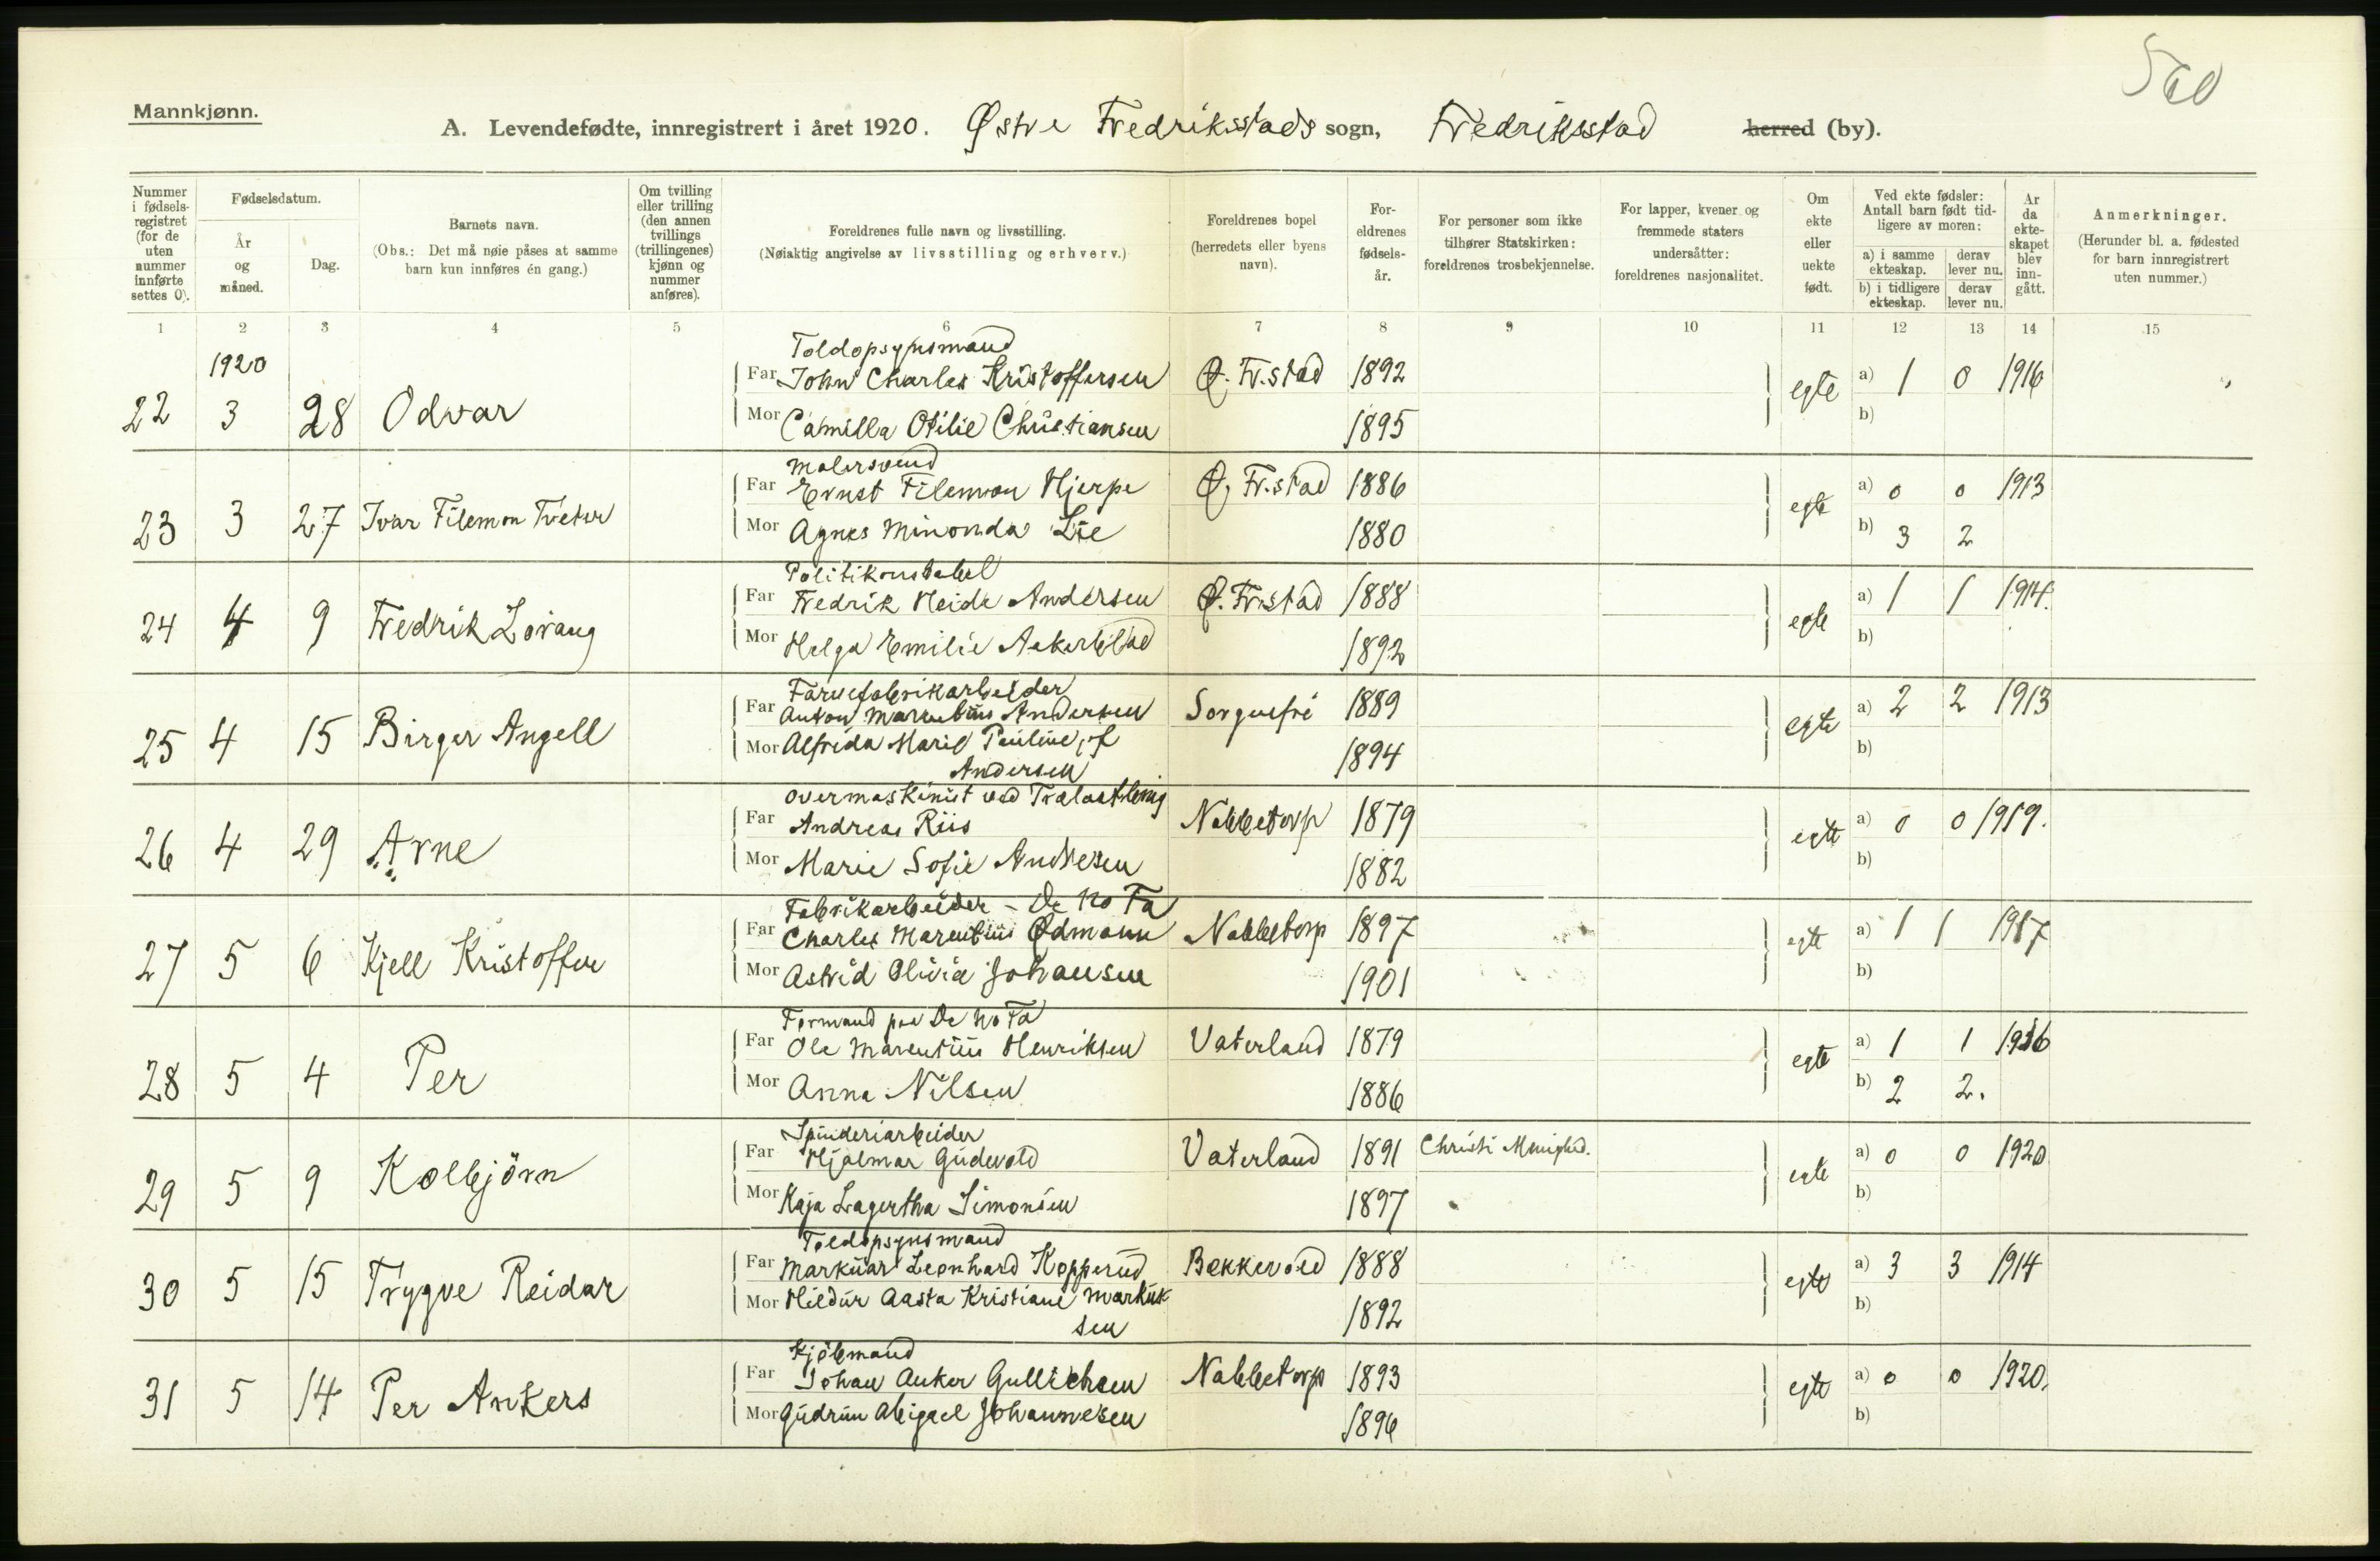 560
Mannkjønn.
A. Levendefødte, innregistrert i året 1920. Østre Fredriksstads sogn, Fredriksstad herred (by).
Nummer i fødselsregistret (for de uten nummer innførte settes 0).
Fødselsdatum.
År og måned.
Dag.
Barnets navn.
(Obs.: Det må nøie påses at samme barn kun innføres én gang.)
Om tvilling eller trilling (den annen tvillings (trillingenes) kjønn og nummer anføres).
Foreldrenes fulle navn og livsstilling.
(Nøiaktig angivelse av livsstilling og erhverv.)
Foreldrenes bopel (herredets eller byens navn).
Foreldrenes fødselsår.
For personer som ikke tilhører Statskirken: foreldrenes trosbekjennelse.
For lapper, kvener og fremmede staters undersåtter: foreldrenes nasjonalitet.
Om ekte eller uekte født.
Ved ekte fødsler: Antall barn født tidligere av moren:
a) i samme ekteskap. derav lever nu.
b) i tidligere ekteskap. derav lever nu.
År da ekteskapet blev inngått.
Anmerkninger.
(Herunder bl. a. fødested for barn innregistrert uten nummer.)
1 2 3 4 5 6 7 8 9 10 11 12 13 14 15
1920
Toldopsynsmand
Far John Charles Kristoffersen Ø. Fr.stad 1892 a) 1 0 1916
22 3 28 Odvar egte
Mor Camilla Otilie Christiansen 1895 b)
Malersvend
Far Ernst Filemon Hjerpe Ø. Fr.stad 1886 a) 0 0 1913
23 3 27 Ivar Filemon Tveter egte
Mor Agnes Minonda Lie 1880 b) 3 2
Politikonstabel
Far Fredrik Heide Andersen Ø. Fr.stad 1888 a) 1 1 1914.
24 4 9 Fredrik Lovang egte
Mor Helga Emilie Aakerblad 1892 b)
Farvefabrikarbeider
Far Anton Marentius Andersen Sorgenfri 1889 a) 2 2 1913
25 4 15 Birger Angell egte
Mor Alfrida Marie Pauline, f. 1894 b)
Andersen
Overmaskinist ved
Far Andreas Riis Nabbetorp 1879 a) 0 0 1919.
26 4 29 Arne egte
Mor Marie Sofie Andresen 1882 b)
Fabrikarbeider - De No Fa
Far Charles Marentius Ødmann Nabbetorp 1897 a) 1 1 1917
27 5 6 Kjell Kristoffer egte
Mor Astrid Olivia Johansen 1901 b)
Formand paa De No Fa
Far Ole Marentius Henriksen Vaterland 1879 a) 1 1 1916
28 5 4 Per egte
Mor Anna Nilsen 1886 b) 2 2.
Spinderiarbeider
Far Hjalmar Gudevold Vaterland 1891 Christi Menighed. a) 0 0 1920
29 5 9 Kolbjörn egte
Mor Kaja Lagertha Simonsen 1897 b)
Toldopsynsmand
Far Markuar Leonhard Kopperud Bekkevold 1888 a) 3 3 1914
30 5 15 Trygve Reidar egte
Mor Hildur Aasta Kristiane Markus 1892 b)
sen
Kjøbmand
Far Johan Anker Gullichsen Nabbetorp 1893 a) 0 0 1920.
31 5 14 Per Ankers egte
Mor Gudrun Abigael Johannesen 1896 b)